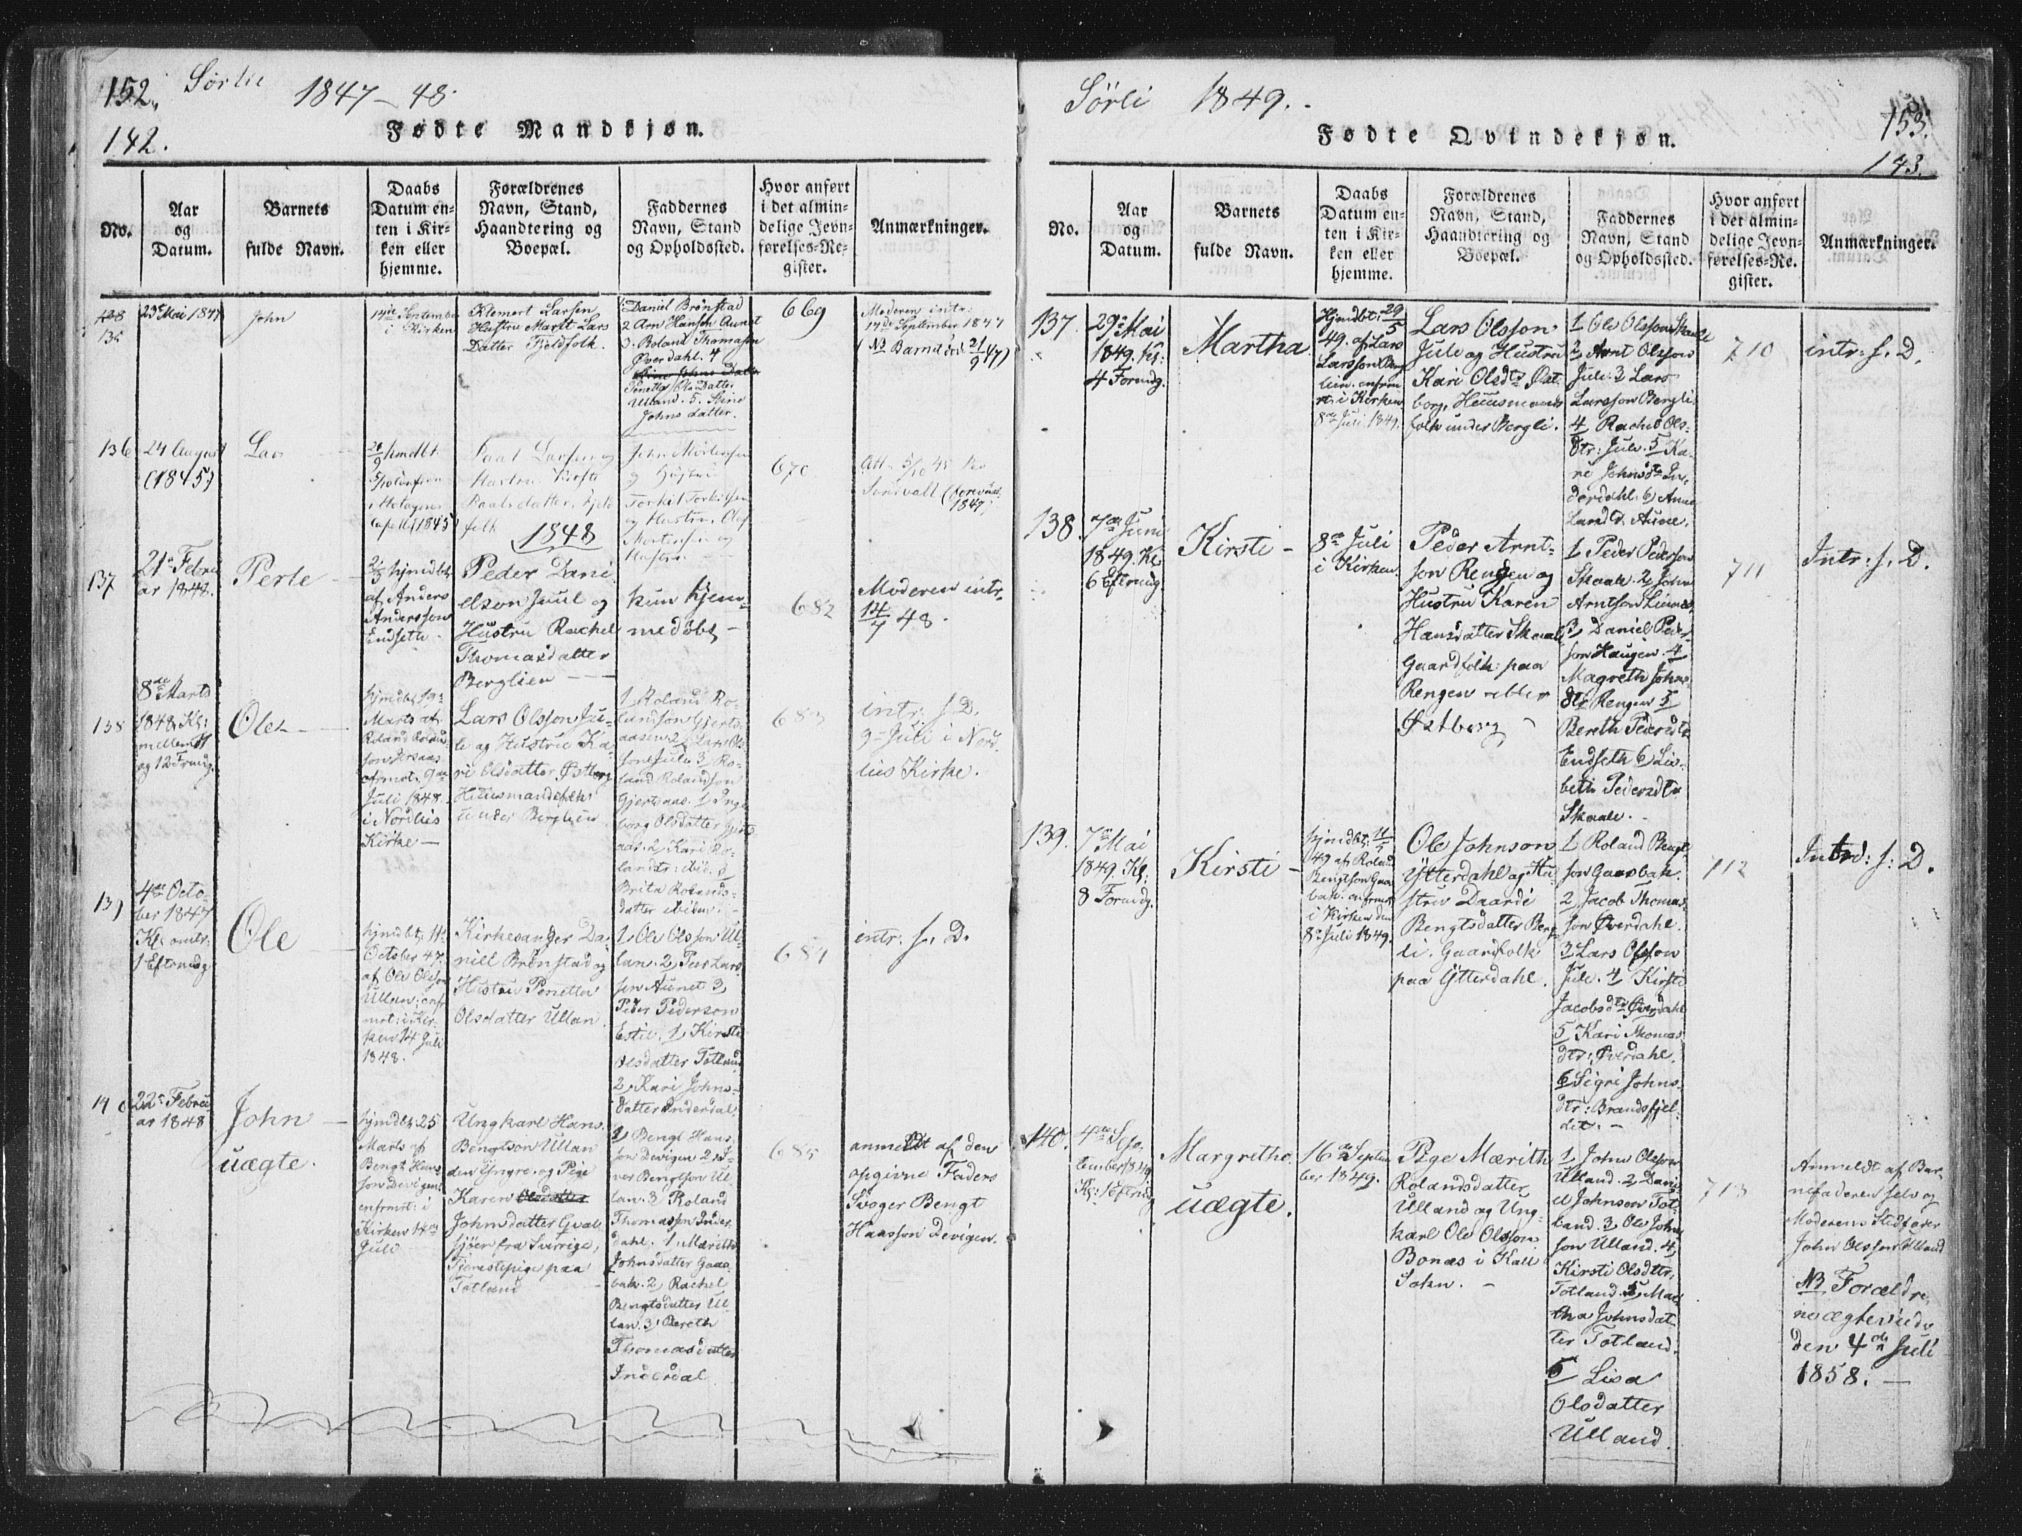 152. Sørlie 1847-48.
142.
Fødte Mandkjøn.
No.
Aar
og
Datum.
Barnets
fulde Navn.
Daabs
Datum en-
ten i Kir-
ken eller
hjemme.
Forældrenes
Navn, Stand,
Haandtering og
Boepæl.
Faddernes
Navn, Stand
og Opholdssted.
Hvor anført
i det almin-
delige Jevn-
førelses-Re-
gister.
Anmærkninger.
135
23 Mai 1847
John
i Kirken
Klemert Larsen
Hustru Marit Lars
Datter
Daniel Brønstad
2 Arn Hansen Aunet
3. Roland Thomasen
Øverdahl. 4
Olsdatter
Ulland. 5. Stine
Johns datter.
669
Moderen intr:
September 1847
136
24 August
(1845)
Lars
hmdbt
Capell (1845)
Paal Larsen og
Hustru
Paalsdatter
folk
John Mortensen
og Hustru
Torkil Torkilsen
og Hustru. Olof
Mortensen og
Hustru
670
1847)
1848
137
21 Febru
ar 1848.
Perle
hjmdbt
af Anders
Andersson
Endsete
Peder Dani
elson Juul og
Hustru Rachel
Thomasdatter
Berglien
kun hjem-
medöbt
682
Moderen intr.
14/7 48.
138
8de Marts
1848 Kl:
mellem 11
og 12 Formdg.
Ole
hjmdbt 19
Marts af
Roland Roland
son
9de
Juli 1848.
i Nordlis
Kirke
Lars Olsson Ju-
le og Hustru Ka-
ri Olsdatter Østborg
Huusmandsfolk
under Berglien
1 Roland Ro-
landson Gjerts-
aasen 2 Lars Ols-
son Jule 3 Ro-
land Rolandson
Gjertsaas. 1 Inge
borg Olsdatter Gjerts
aas. 2 Kari Ro-
landstr: ibid. 3
Brita Rolands-
datter ibidem.
683
intr: s. D.
9 Juli i Nord-
lies Kirke.
139
4de Octo-
ber 1847
Kl: omtr:
1 Eftermdg
Ole
hjmdbt 11
October 47.
af Ole Olsson
Ullan: enfir
met: i Kir-
ken 14 Juli
1848.
Kirkesanger Da-
niel Brønstad og
Hustru Penetta
Olsdatter Ullan
1 Ole Olsson Ul-
lan. 2 Peer Lars-
son Aunet 3
Peder Pederson
Estil. 1 Kirsti
Olsdatter Totland
2 Kari Johns-
datter Inderdal
684
intr: s. D.
140
22 Febru
ar 1848
John
uægte.
hjmdbt 25
Marts af
Bengt Hans-
son Devigen
enfrmt: i
Kirken 14de
Juli
Ungkarl Hans
Bengtson Ullan
den Yngre og Pige
Karen Olsdatter
Johnsdatter Qvæl
sjøen fra Sverrige,
Tjenestepige paa
Totland
1 Bengt Hans-
son Devigen 2 I-
ver Bengtson Ul
lan. 3 Roland
Thomasson Inder
dahl. 1 Mærith
Johnsdatter Gaas-
bak. 2 Rachel
Bengtsdatter Ul
lan. 3 Bereth
Thomasdatter
Inderdal
685
anmeldt af den
opgivne Faders
Svoger Bengt
Hansson Devigen.
Sörli 1849.
153.
143.
Fødte Qvindekjøn.
No.
Aar
og
Datum.
Barnets
fulde Navn.
Daabs
Datum en-
ten i Kir-
ken eller
hjemme.
Forældrenes
Navn, Stand,
Haandtering og
Boepæl.
Faddernes
Navn, Stand
og Opholdssted.
Hvor anført
i det almin-
delige Jevn-
førelses-Re-
gister.
Anmærkninger.
137.
29 Mai
1849. Kl:
4 Formdg.
Martha
Hjmdbt: 29/5
49. af Lars
Larsson Berg
lien. enfrm
rt: i Kirken
8de Juli 1849.
Lars Olsson
Jule og Hustru
Kari Olsdtr Øst
borg, Huusmands
folk under Bergli.
1 Ole Olsson Skaale
2 Arnt Olsson
Jule. 3 Lars
Larsson Bergli
4 Rachel Ols-
dtr: Jule. 5 Ka-
ri Johnsdtr In-
derdahl. 6, Anne
Larsd. Aune.
710
intr: s. D.
138.
7de Juni
1849. Kl.
6 Eftermdg.
Kirsti
8de Juli
i Kirken.
Peder Arnt-
son Rengen og
Hustru Karen
Hansdatter Skaale
Gaardfolk paa
Rengen
Østborg
1 Peder Pedersson
Skaale. 2 John
Arntson Linnes
3 Daniel Peder-
son Haugen. 4
Magreth Johns
dtr Rengen 5
Bereth Pedersdtr
Endseth 6 Lis-
beth Pedersdtr
Skaale.
711
Intr: s. D.
139.
7de Mai
1849. Kl:
8 Formdg.
Kirsti
hjmdbt: 11/5
49 af Roland
Bengtson Gaas
bak. enfrmrt
i Kirken den
8de Juli 1849.
Ole Johnson
Ytterdahl og Hu-
stru Daardi
Bengtsdatter Berg-
li. Gaardfolk
paa Ytterdahl.
1 Roland Bengt-
son Gaasbak.
2 Jacob Thomas-
son Øverdahl.
3 Lars Olsson
Jule. 4 Kirsti
Jacobsdtr Øverdahl
5 Kari Thomas
dtr: Øverdahl.
6 Sigri Johns-
dtr: Brandsfjel-
det.
712
Intrd: s: D.
140.
4de Sep-
tember 1849
Kl: 1 Eftermdg
Margrethe
uægte.
16de Septem
ber 1849.
Pige Mærith
Rolandsdatter
Ulland og Ung-
karl Ole Olsson
Bonæs i Kall
Sohn.
1 John Olsson
Ulland. 2 Dani-
el Johnson Tot-
land. 3 Ole John
son Ulland. 4
Kirsti Olsdtr:
Totland. 5 Mar
tha Johnsdat-
ter Totland.
6 Lisa
Olsdatter
Ulland.
713
Anmeldt af Bar-
nefaderen selv og
Moderens Stedfader
John Olsson Ulland
NB Foræld re-
ne ægteviede
den 4de Juli
1858.